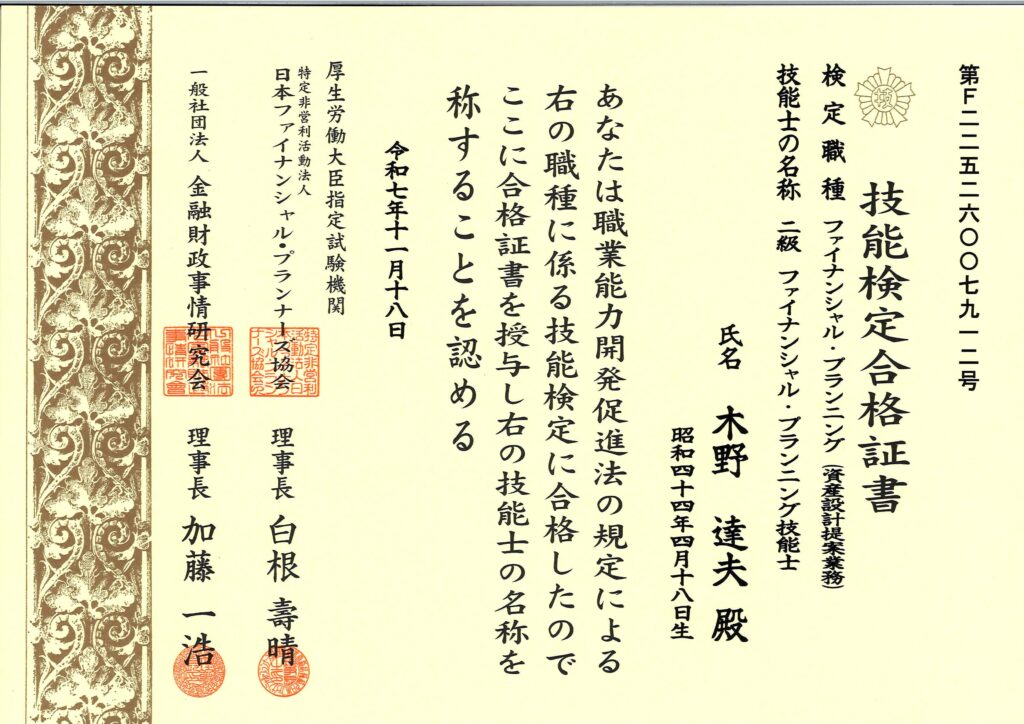 第F二二五二六〇〇七九一二号
技能検定合格証書
検定職種 ファイナンシャル・プランニング(資産設計提案業務)
技能士の名称 二級 ファイナンシャル・プランニング技能士
氏名 木野 達夫 殿
昭和四十四年四月十八日生
あなたは職業能力開発促進法の規定による
右の職種に係る技能検定に合格したので
ここに合格証書を授与し右の技能士の名称を
称することを認める
令和七年十一月十八日
厚生労働大臣指定試験機関
特定非営利活動法人
日本ファイナンシャル・プランナーズ協会 理事長 白根 壽晴
一般社団法人 金融財政事情研究会 理事長 加藤 一浩